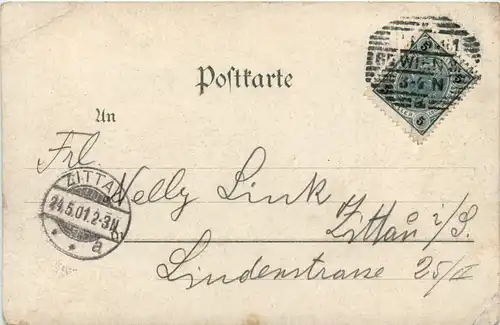 Postkarte
An
Frl.
Nelly Link
Zittau i/S.
Lindenstrasse 25/II
ZITTAU
24.5.01.2-3N
a
WIEN
3-4 N
5
5
5